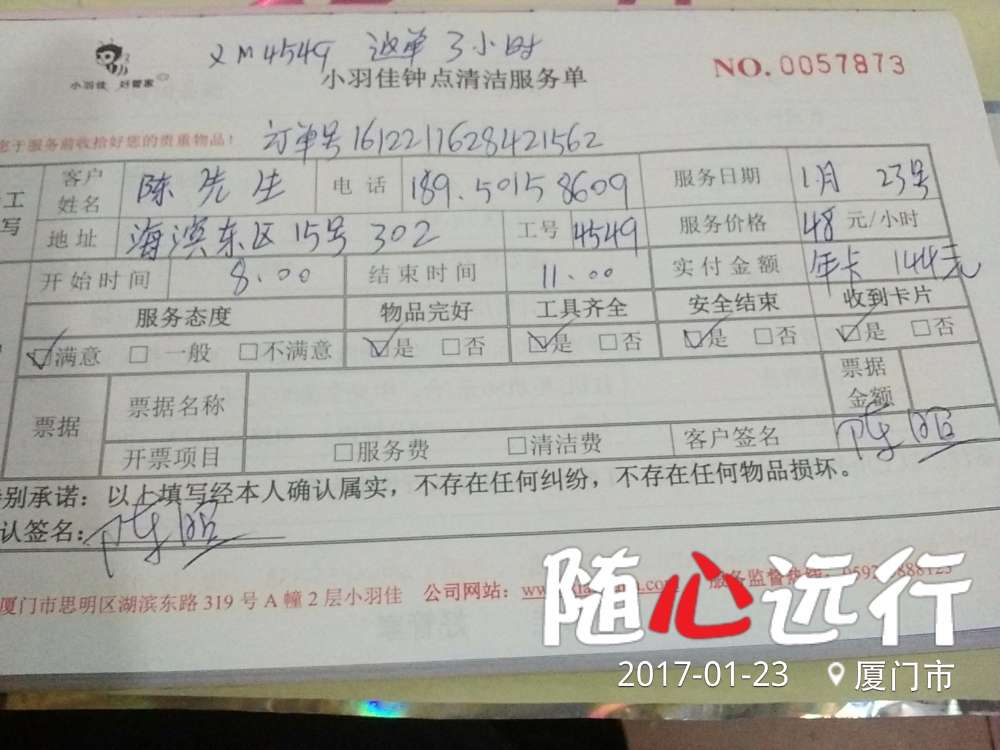 XM4549 返单 3小时
小羽佳 好管家
小羽佳钟点清洁服务单
NO. 0057873
您于服务前收拾好您的贵重物品!
订单号1612211628421562
工 客户姓名 陈先生 电话 189.50158609 服务日期 1月 23号
写 地址 海滨东区15号302 工号 4549 服务价格 48元/小时
开始时间 8.00 结束时间 11.00 实付金额 年卡 144元
服务态度 物品完好 工具齐全 安全结束 收到卡片
☑满意 □一般 □不满意 ☑是 □否 ☑是 □否 ☑是 □否 ☑是 □否
票据 票据名称 票据金额
开票项目 □服务费 □清洁费 客户签名
别承诺：以上填写经本人确认属实，不存在任何纠纷，不存在任何物品损坏。
认签名：
厦门市思明区湖滨东路 319 号 A 幢 2 层小羽佳 公司网站： 服务监督热线
随心远行
2017-01-23 厦门市